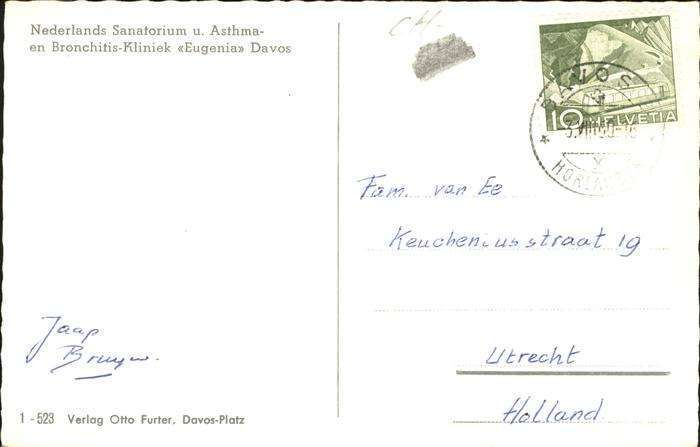 Nederlands Sanatorium u. Asthma-
en Bronchitis-Kliniek «Eugenia» Davos
CH-
10 HELVETIA
DAVOS
Fam. van Ee
Keucheniusstraat 19
Utrecht
Holland
Jaap
1 - 523 Verlag Otto Furter, Davos-Platz